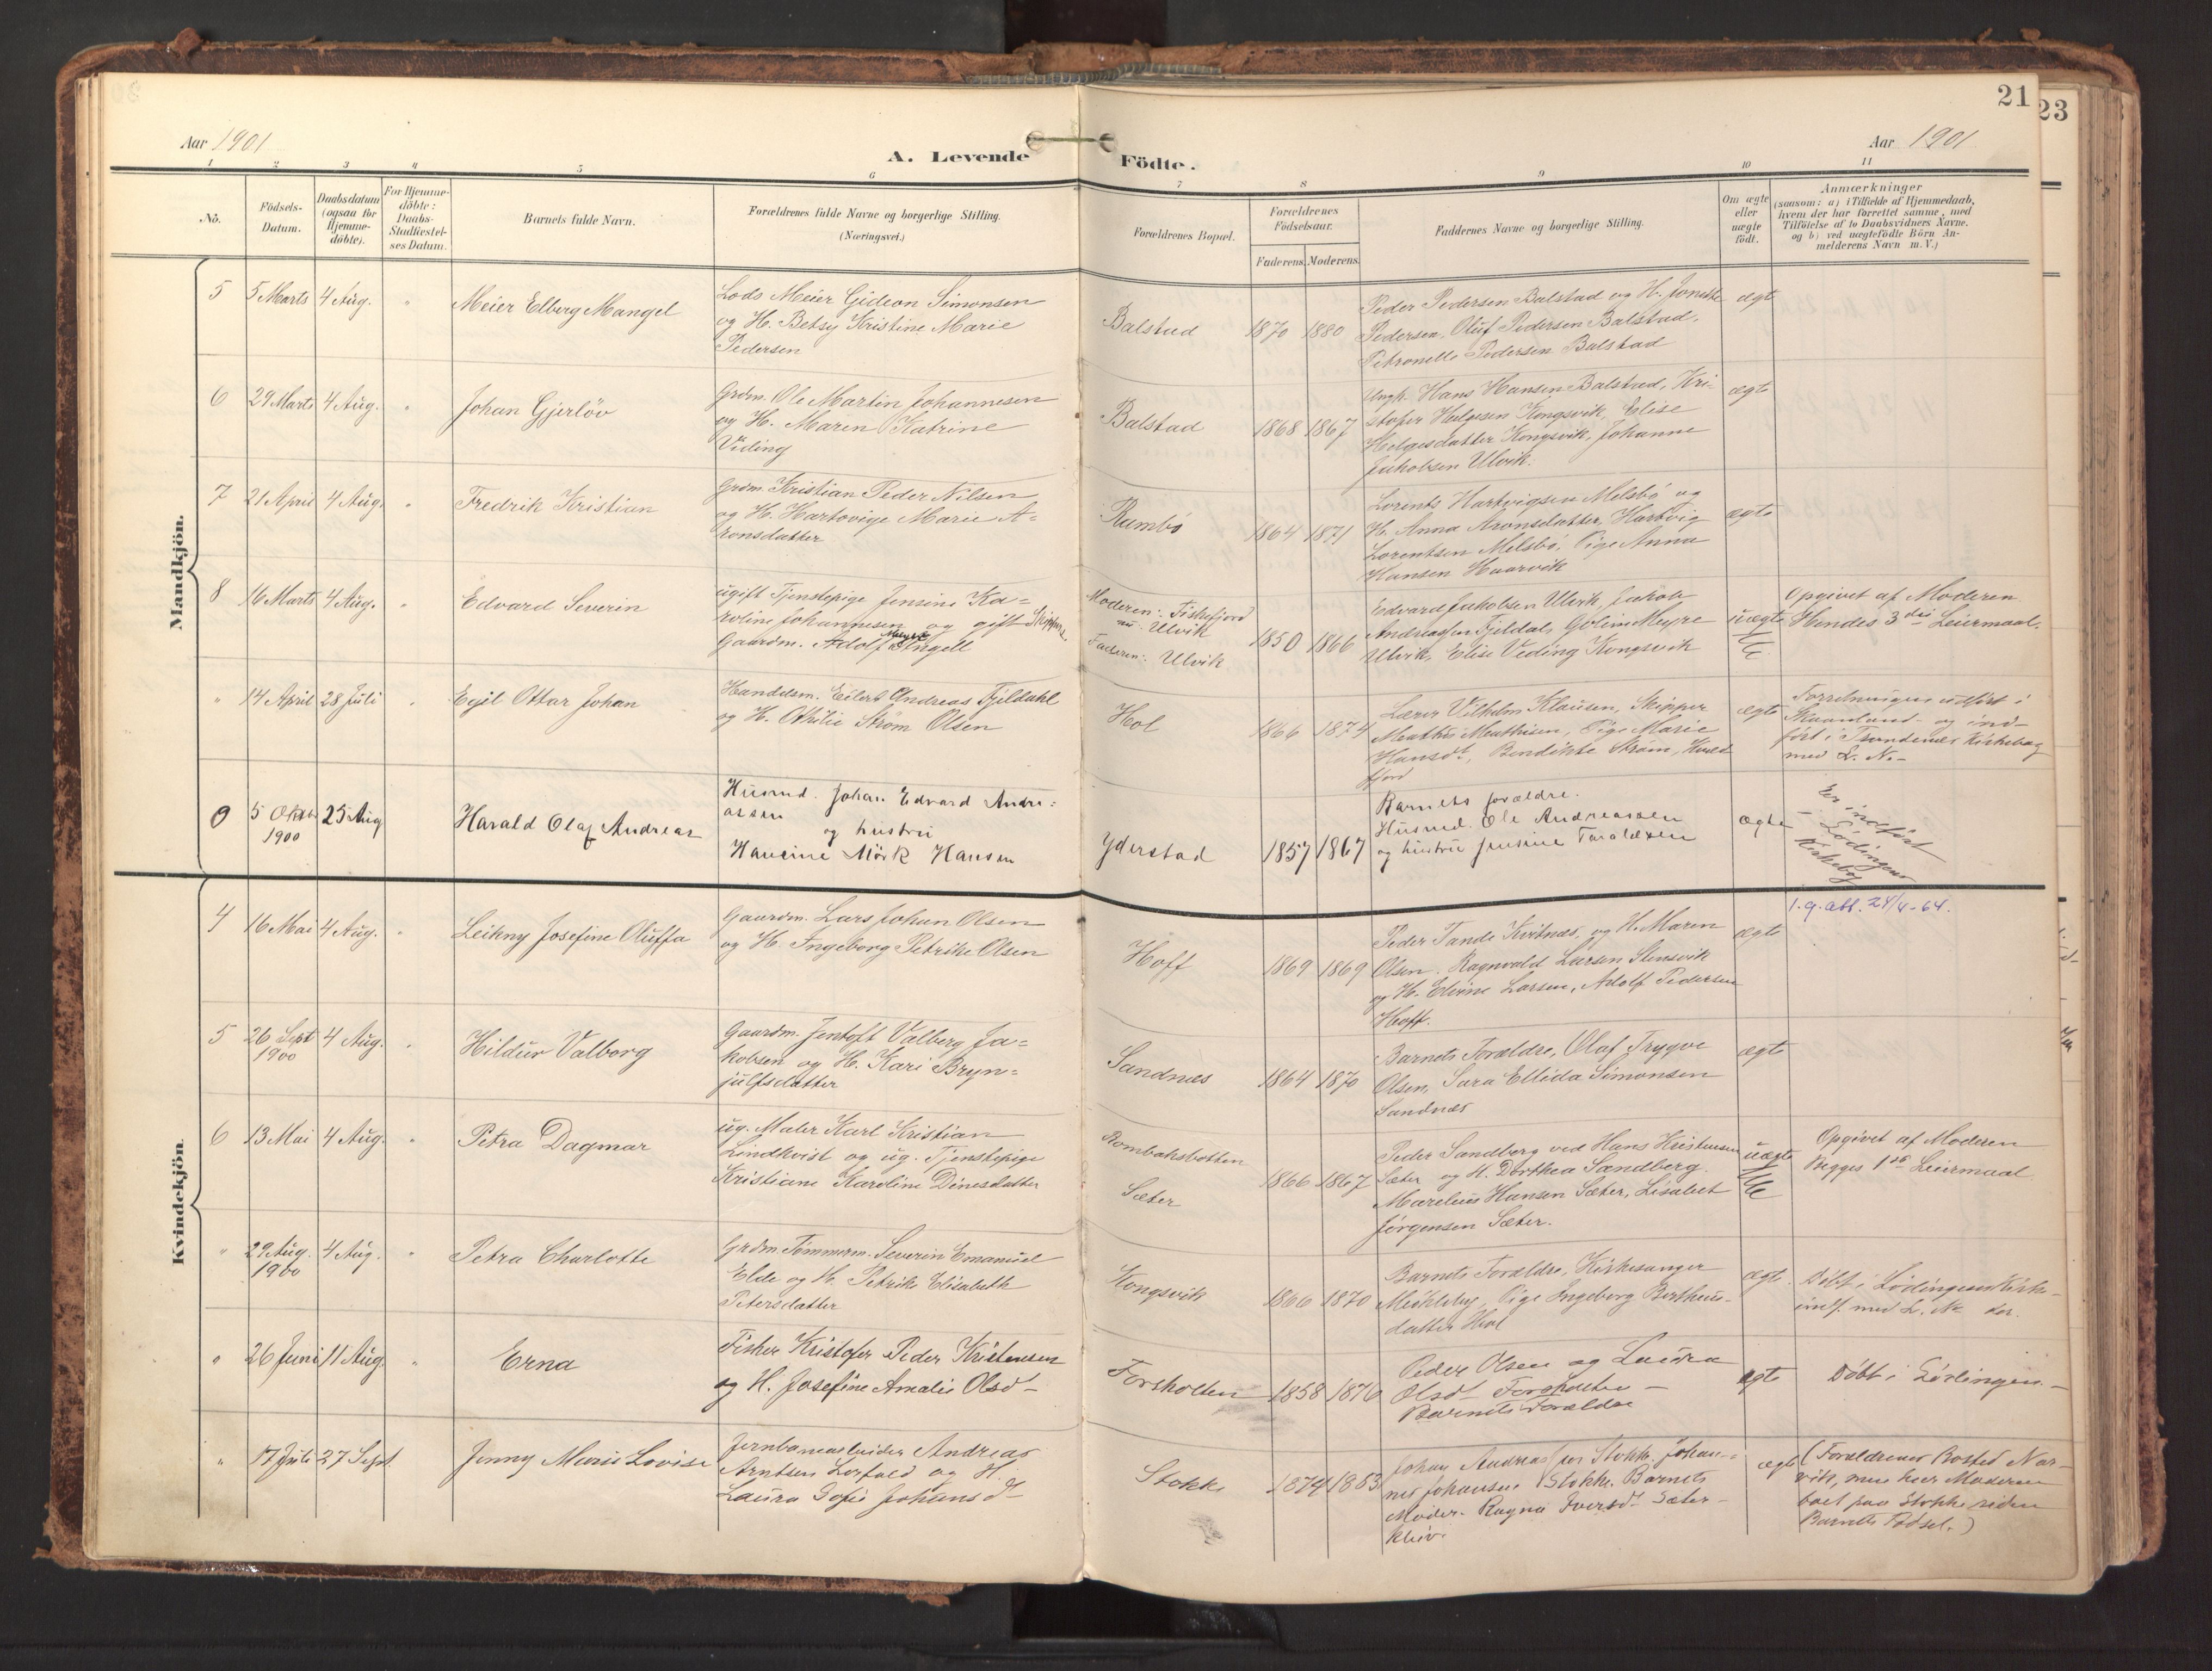 21
23
Aar 1901
A. Levende
Födte.
Aar 1901
1 2 3 4 5 6 7 8 9 10 11
No.
Födsels-
Datum.
Daabsdatum
(ogsaa for
Hjemme-
döbte).
For Hjemme-
döbte:
Daabs-
Stadfæstel-
ses Datum.
Barnets fulde Navn.
Forældrenes fulde Navne og borgerlige Stilling.
(Næringsvei.)
Forældrenes Bopæl.
Forældrenes
Födselsaar.
Faderens. Moderens.
Faddernes Navne og borgerlige Stilling.
Om ægte
eller
uægte
födt.
Anmærkninger
(saasom: a) i Tilfælde af Hjemmedaab,
hvem der har forrettet samme, med
Tilföielse af to Daabsvidners Navne,
og b) ved uægtefödte Börn An-
melderens Navn m.V.)
Mandkjön.
5 5 Marts 4 Aug. " Meier Elberg Mangel
Lods Meier Gideon Simonsen
og H. Betsy Kristine Marie
Pedersen
Balstad 1870 1880
Peder Pedersen Balstad og H.
Pedersen, Oluf Pedersen Balstad,
Petronelle Pedersen Balstad
ægte
6 29 Marts 4 Aug. " Johan Gjerløv
Grdm. Ole Martin Johannesen
og H. Maren Katrine
Viding
Balstad 1868 1867
Ungk. Hans Hansen Balstad, Kri-
stofer Helgesen Kongsvik, Elise
Helgesdatter Kongsvik, Johanne
Jakobsen Ulvik.
ægte
7 21 April 4 Aug. " Fredrik Kristian
Grdm. Kristian Peder Nilsen
og H. Hartvige Marie A-
ronsdatter
Rumbö 1864 1871
Lorents Hartvigsen Melsbö og
H. Anna Aronsdatter, Hartvig
Lorentsen Melsbö, Pige Anna
Hansen Haarvik
ægte
8 16 Marts 4 Aug. " Edvard Severin
ugift Tjenstepige Jensine Ka-
roline Johannesen og gift Skipper,
Gaardm. Adolf Meyer Angell
Moderen: Fiskefjord
Ulvik
Faderen: Ulvik
1850 1866
Edvard Jakobsen Ulvik, Jakob
Andreassen Fjeldal, Meyre
Ulvik, Elise Veding Kongsvik
uægte
Opgivet af Moderen
Hendes 3die Leiermaal.
" 14 April 28 Juli " Egil Ottar Johan
Handelsm. Eilert Andreas Fjeldahl
og H. Otilie Strøm Olsen
Hol 1866 1874
Lærer Vilhelm Klausen, Skipper
Mathis Mathisen, Pige Marie
Hansdt, Bendikte Strøm,
fjord
ægte
Forretningen udført i
Skaanland- og ind-
ført i Trondenes Kirkebog
med L. N.-
9 5 Oktbr 25 Aug
1900
Harald Olaf Andreas
Husmd. Johan Edvard Andre-
assen
og hustru
Hansine Mörk Hansen
Yderstad 1857 1867
Barnets forældre.
Husmd. Ole Andreassen
og hustru Jensine Taraldsen
ægte
Er indført
i Lødingens
Kirkebog
Kvindekjön.
4 16 Mai 4 Aug. " Leikny Josefine Oluffa
Gaardm. Lars Johan Olsen
og H. Ingeborg Petrike Olsen
Hoff 1869 1869
Peder Tande Kvitnæs, og H. Maren
Olsen. Ragnvald Larsen Stensvik
og H. Elvine Larsen, Adolf Pedersen
Hoff.
ægte
1.g.att. 24/4-64.
5 26 Sept 4 Aug. "
1900
Hildur Valborg
Gaardm. Jentoft Valberg Ja-
kobsen og H. Kari Bryn-
julfsdatter
Sandnæs 1864 1870
Barnets Forældre, Olaf Trygve
Olsen, Sara Ellida Simonsen
Sandnæs
ægte
6 13 Mai 4 Aug. " Petra Dagmar
ug. Maler Karl Kristian
Lindkvist og ug. Tjenstepige
Kristiane Karoline Dinesdatter
Rombaksbotten
Sæter
1866 1867
Peder Sandberg ved Hans Kristensen
Sæter og H. Dorthea Sandberg.
Marelius Hansen Sæter, Lisabet
Jörgensen Sæter.
uægte
Opgivet af Moderen
Begges 1ste Leiermaal
" 29 Aug. 4 Aug. "
1900
Petra Charlotte
Grdm. Tømmerm. Severin Emanuel
Elde og H. Petrike Elisabeth
Petersdatter
Kongsvik 1866 1870
Barnets Forældre, Kirkesanger
Mechleby, Pige Ingeborg Bertheus-
datter Hol
ægte.
Døbt i Lødingens Kirke
indf. med L. No der.
" 26 Juni 11 Aug. " Erna
Fisker Kristofer Peder Kristensen
og H. Josefine Amalie Olsd-
Forsholten 1858 1876
Peder Olsen og Laura
Olsdt Forsholten -
Barnets Forældre
ægte
Döbt i Lödingen. -
" 17 Juli 27 Sept Jenny Marie Lovise
Jernbanearbeider Andreas
Arntsen Lerfald og H.
Laura Sofie Johansd-
Stokke 1874 1863
Johan Andreas Stokke. Johan-
nes Johansen Stokke. Barnets
Moder. Ragna Iversdt Sæter-
kleiv.
ægte
(Forældrenes Bosted Nar-
vik, men har Moderen
boet paa Stokke siden
Barnets Födsel.)